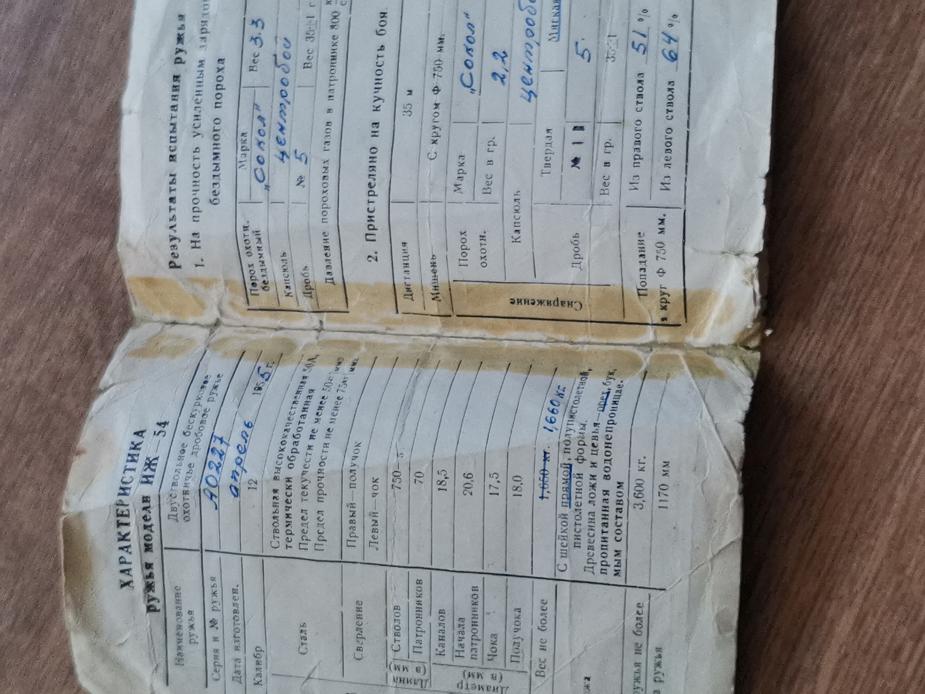 ХАРАКТЕРИСТИКА
ружья модели ИЖ 54
Наименование ружья Двуствольное бескурковое охотничье дробовое ружье
Серия и № ружья
Дата изготовлен. апрель 1955 г.
Калибр 12
Сталь Ствольная высококачественная 50А, термически обработанная
Предел текучести не менее
Предел прочности не менее
Сверление Правый—получок
Левый чок
Длина (в мм)
Стволов 750
Патронников 70
Диаметр (в мм)
Каналов 18,5
Начала патронников 20,6
Чока 17,5
Получока 18,0
Вес не более 1,660 кг. 1,660 кг
С шейкой прямой, полупистолетной,
пистолетной формы.
Древесина ложи и цевья—орех, бук,
пропитанная водонепроницае-
мым составом
ружья не более 3,600 кг.
ружья 1170 мм
Результаты испытания ружья
1. На прочность усиленным
бездымного пороха
Порох охотн. бездымный Марка „Сокол" Вес 3.3
Капсюль центробой
Дробь № 5 Вес 35±1 г
Давление пороховых газов в патроннике 800
2. Пристреляно на кучность боя.
Дистанция 35 м
Мишень С кругом Ф 750 мм.
Снаряжение
Порох охотн. Марка „Сокол"
Вес в гр. 2,2
Капсюль
Дробь Твердая Мягкая
№ 5
Вес в гр. 35±1
Попадание в круг Ф 750 мм.
Из правого ствола 51 %
Из левого ствола 64 %